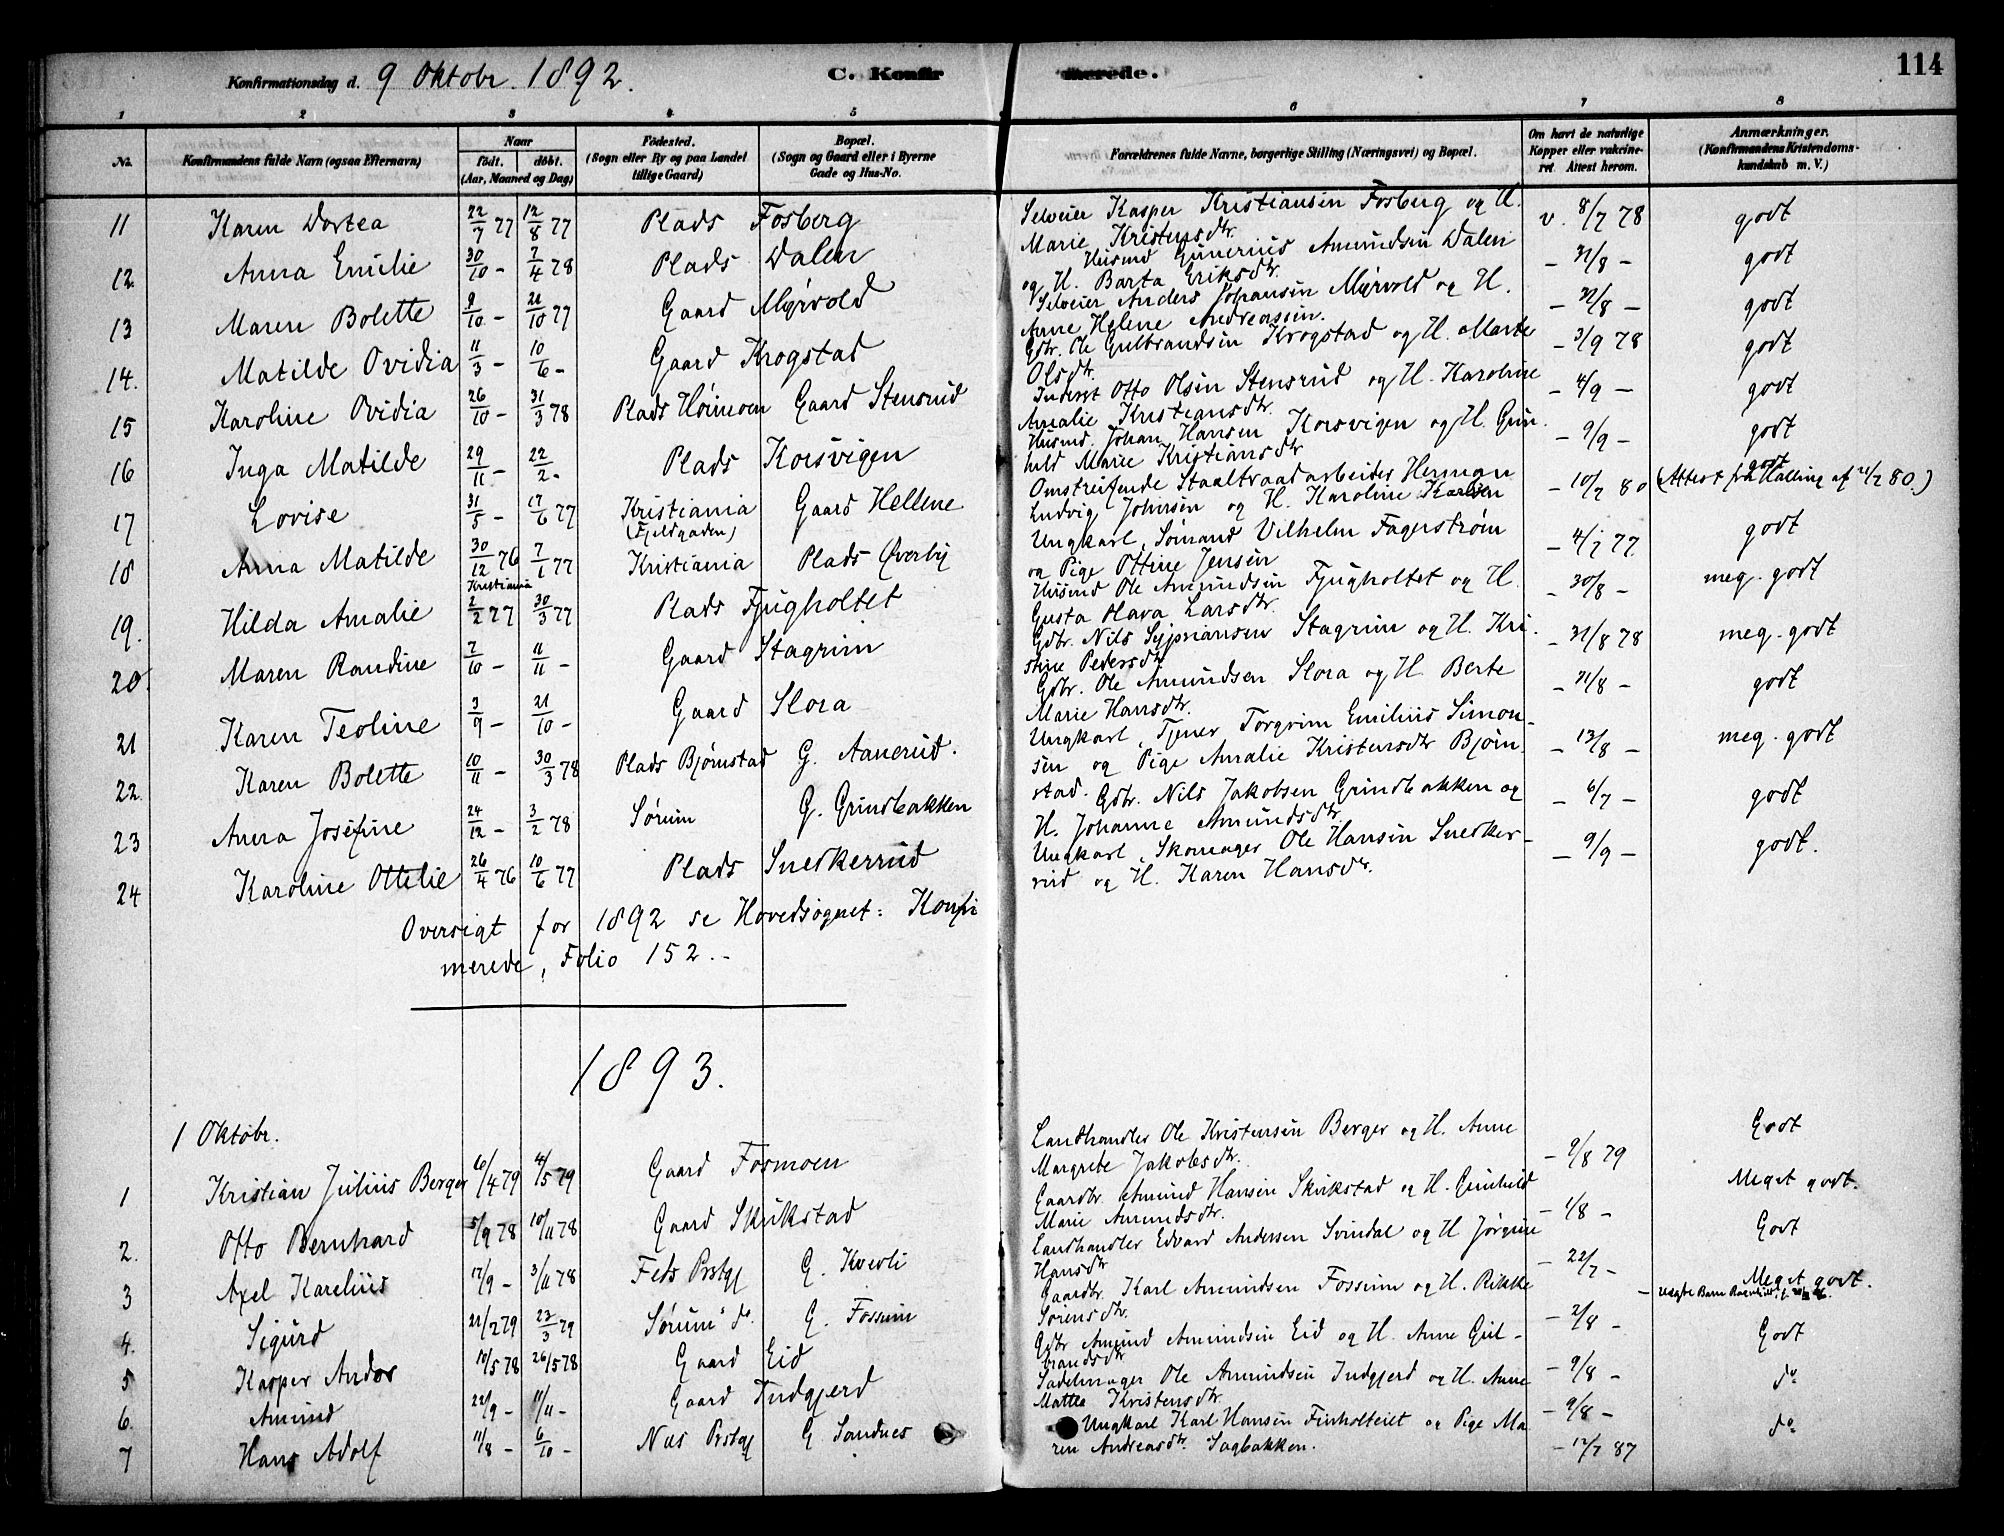 Konfirmationsdag d. 9 Oktobr. 1892. C. Konfirmerede. 114
1 2 3 4 5 6 7 8
No. Konfirmandens fulde Navn (ogsaa Efternavn) Naar født. døbt. (Aar, Maaned og Dag) Fødested. (Sogn eller By og paa Landet tillige Gaard) Bopæl. (Sogn og Gaard eller i Byerne Gade og Hus-No. Forældrenes fulde Navne, borgerlige Stilling (Næringsvei) og Bopæl. Om havt de naturlige Kopper eller vakcineret. Attest herom. Anmærkninger. (Konfirmandens Kristendomskundskab m. V.)
11 Karen Dortea 22/7 77 12/8 77 Plads Fosberg Selveier Kasper Kristiansen Fosberg og H. Marie Kristensdtr. v. 8/7 78 godt
12. Anna Emilie 30/10 - 7/4 78 Plads Dalen Husmd Gunerius Amundsen Dalen og H. Barta Eriksdtr. - 31/8 - godt
13 Maren Bolette 9/10 - 21/10 77 Gaard Myrvold Selveier Anders Johansen Myrvold og H. Anne Helene Andreassen. - 31/8 - godt
14. Matilde Ovidia 11/3 - 10/6 - Gaard Krogstad Gdbr. Ole Gulbrandsen Krogstad og H. Marte Olsdtr. - 3/9 78 godt
15 Karoline Ovidia 26/10 - 31/3 78 Plads Høimoen Gaard Stensrud Inderst Otto Olsen Stensrud og H. Karoline Amalie Kristiansdtr. - 4/9 - godt
16 Inga Matilde 29/11 - 22/2 - Plads Korsvigen Husmd. Johan Hansen Korsvigen og H. Gunhild Marie Kristiansdtr - 9/9 - godt
17 Lovise 31/5 - 17/6 77 Kristiania (Fjeldgaden) Gaard Hellene Omstreifende Staaltraadarbeider Herman Ludvig Johnsen og H. Karoline Karlsen - 10/7 80 godt (Attest fra Halling af 11/7 80.)
18 Anna Matilde 30/12 76 7/1 77 Kristiania Kristiania Plads Øverby Ungkarl, Sømand Vilhelm Fagerstrøm og Pige Ottine Jensen - 4/7 77 godt
19. Hilda Amalie 2/2 77 30/3 77 Plads Fjugholtet Husmd Ole Amundsen Fjugholtet og H. Gusta Olava Larsdtr. - 30/8 - meg. godt
20. Maren Randine 7/10 - 11/11 - Gaard Stagrim Gdbr. Nils Sypriansen Stagrim og H. Kristine Pedersdtr - 31/8 78 meg. godt
21 Karen Teoline 3/9 - 21/10 - Gaard Slora Gdbr. Ole Amundsen Slora og H. Berte Marie Hansdtr. - 31/8 - godt
22. Karen Bolette 10/11 - 30/3 78 Plads Bjørnstad G. Aanerud. Ungkarl, Tjener Torgrim Emilius Simonsen og Pige Amalie Kristensdtr Bjørnstad. - 13/8 - meg. godt
23 Anna Josefine 24/12 - 3/2 78 Sørum G. Grindbakken Gdbr. Nils Jakobsen Grindbakken og H. Johanne Amundsdtr. - 6/7 - godt
24 Karoline Ottilie 26/4 76 10/6 77 Plads Snedkerrud Ungkarl, Skomager Ole Hansen Snedkerrud og H. Karen Hansdtr. - 9/9 - godt.
Oversigt for 1892 se Hovedsognet: Konfi
merede, Folio 152.-
1893.
1 Oktobr.
1 Kristian Julius Berger 6/4 79 4/5 79 Gaard Fosmoen Landhandler Ole Kristensen Berger og H. Anne Margrete Jakobsdtr. - 9/8 79 Godt
2. Otto Bernhard 5/9 78 10/11 78 Gaard Skukstad Gaardbr. Amund Hansen Skukstad og H. Gunhild Marie Amundsdtr. - 1/8 - Meget godt.
3 Axel Karelius 17/9 - 3/11 78 Fets Prstgj G. Kverli Landhandler Edvard Andersen Svindal og H Jørgine Hansdtr - 22/7 - Godt
4. Sigurd 21/2 79 23/3 79 Sørum do G. Fossum Gaardbr. Karl Amundsen Fossum og H. Rikke Sørensdtr. - 2/8 - Meget godt.
5 Kasper Andor 10/5 78 26/5 78 Gaard Eid Gdbr Amund Amundsen Eid og H. Anne Gulbrandsdtr - 9/8 - Godt
6. Amund 22/9 - 17/11 - Gaard Indgjerd Sadelmager Ole Amundsen Indgjerd og H. Anne Mattea Kristensdtr. - 9/8 - do
7 Hans Adolf 11/8 - 6/10 - Næs Prstgj G Sandnes Ungkarl Karl Hansen Finholteiet og Pige Maren Andreasdtr. Sagbakken. - 12/7 87 do